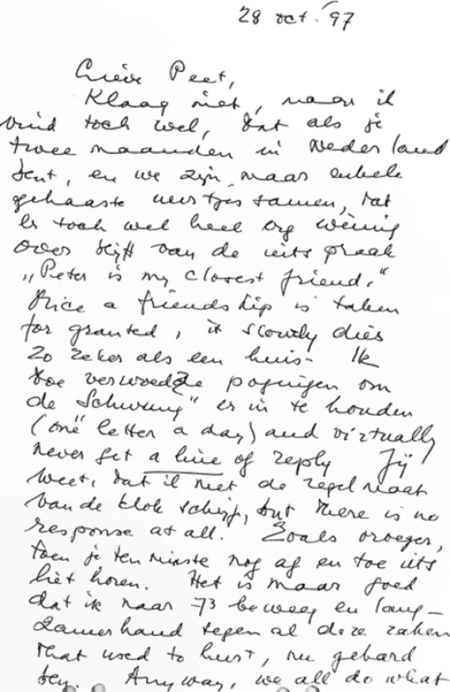 28 oct. '97
Lieve Peet,
Klaag niet, maar ik
vind toch wel, dat als je
twee maanden in Nederland
bent, en we zijn maar enkele
gehaaste uurtjes samen, dat
er toch wel heel erg weinig
over blijft van de uitspraak
„Peter is my closest friend."
Once a friendship is taken
for granted, it slowly dies
zo zeker als een huis. Ik
doe verwoedde pogingen om
de „Schwung" er in te houden
(one letter a day) and virtually
never get a line of reply Jij
weet, dat ik met de regelmaat
van de klok schrijf, but there is no
response at all. Zoals vroeger,
toen je ten minste nog af en toe iets
liet horen. Het is maar goed
dat ik naar 73 beweeg en lang-
zamerhand tegen al deze zaken
that used to hurt, nu gehard
ben. Anyway, we all do what